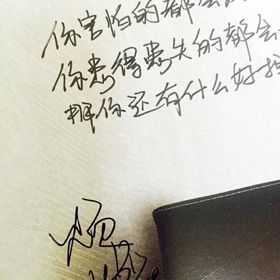 你害怕的都会
你患得患失的都会
那你还有什么好